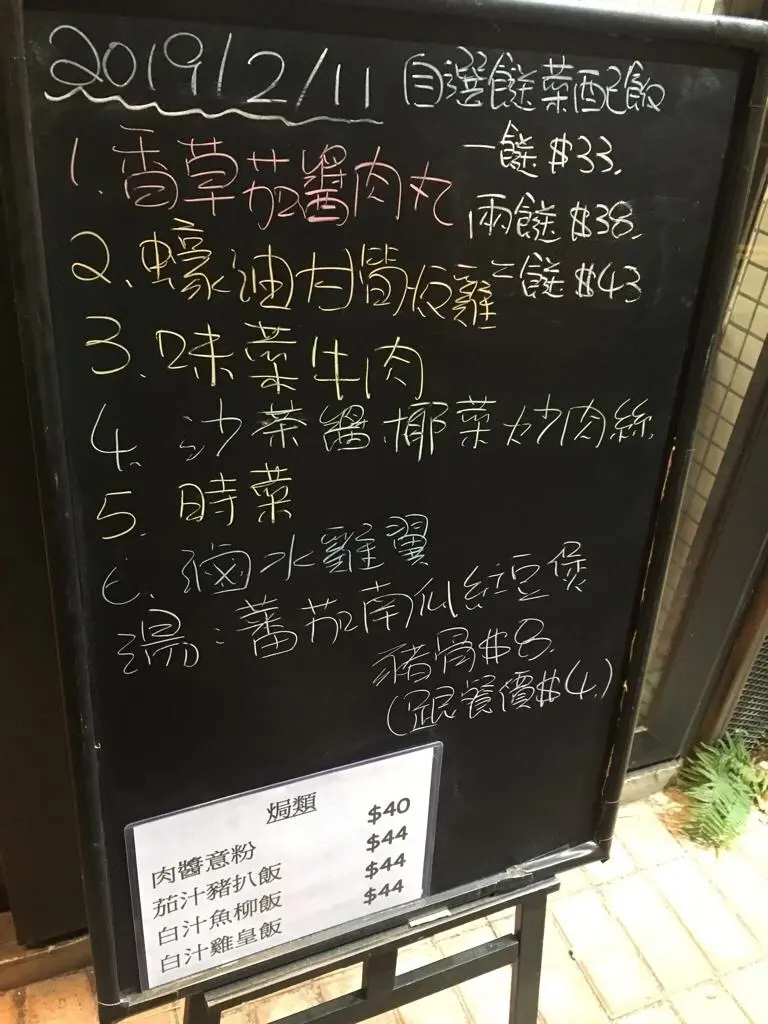 2019/2/11 自選餸菜配飯
一餸 $33.
兩餸 $38.
三餸 $43
1. 香草茄醬肉丸
2. 蠔油甘筍炆雞
3. 味菜牛肉
4. 沙茶醬椰菜炒肉絲
5. 時菜
6. 滷水雞翼
湯:蕃茄南瓜紅豆煲
豬骨$8.
(跟餐價$4.)
焗類
肉醬意粉 $40
茄汁豬扒飯 $44
白汁魚柳飯 $44
白汁雞皇飯 $44